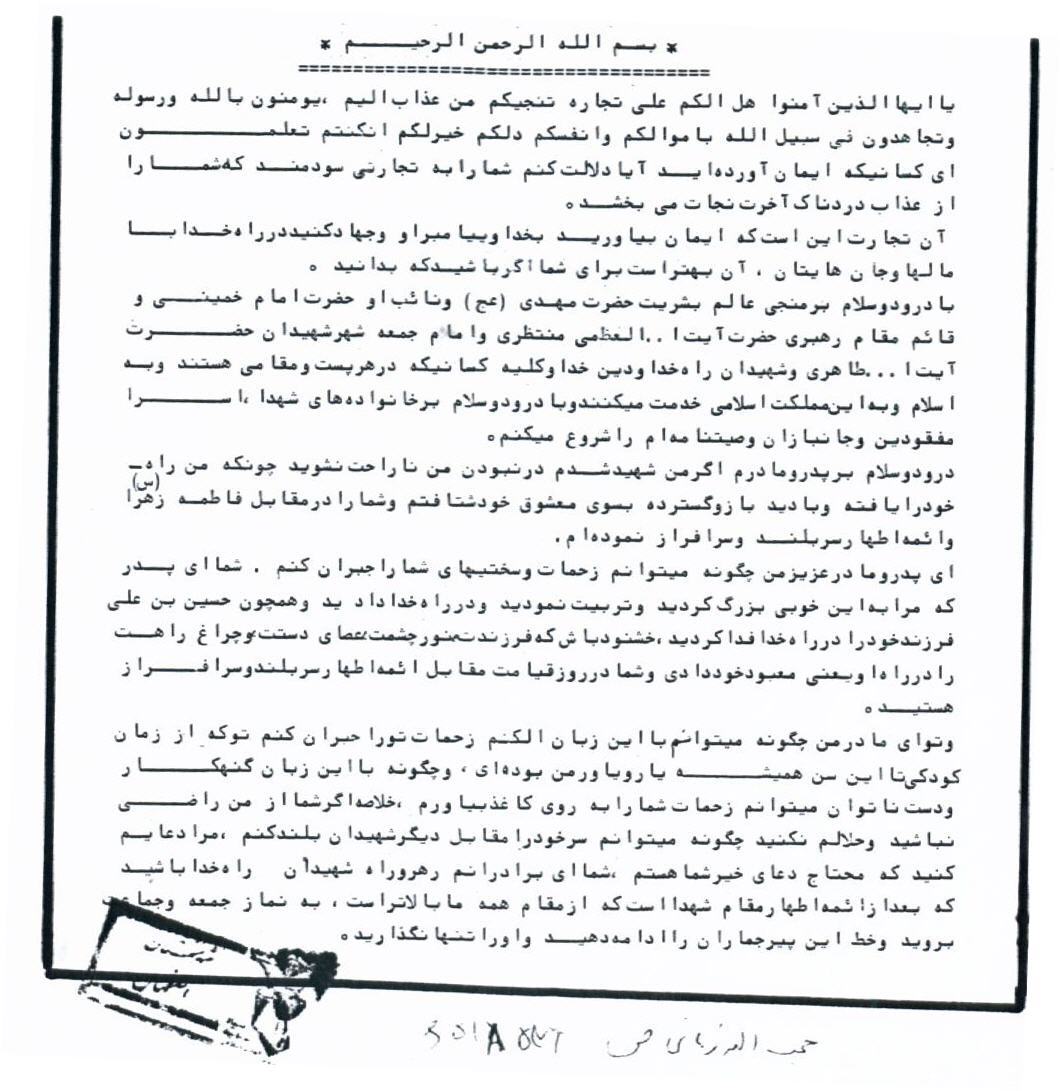 * بسم الله الرحمن الرحیم *
یا ایها الذین آمنوا هل الکم علی تجاره تنجیکم من عذاب الیم ،یومنون بالله ورسوله
وتجاهدون فی سبیل الله باموالکم وانفسکم دلکم خیرلکم انکنتم تعلمون
ای کسانیکه ایمان آورده‌اید آیا دلالت کنم شما را به تجارتی سودمند که شما را
از عذاب دردناک آخرت نجات می بخشد.
آن تجارت این است که ایمان بیاورید بخدا وپیامبراو وجهاد کنید در راه خدا با
مالها وجان هایتان ، آن بهتر است برای شما اگر باشید که بدانید .
با درود وسلام برمنجی عالم بشریت حضرت مهدی (عج) ونائب او حضرت امام خمینی و
قائم مقام رهبری حضرت آیت ا..العظمی منتظری وامام جمعه شهر شهیدان حضرت
آیت ا...طاهری وشهیدان راه خدا ودین خدا وکلیه کسانیکه در هر پست ومقامی هستند وبه
اسلام وبه این مملکت اسلامی خدمت میکنند وبا درود وسلام برخانواده‌های شهدا ،اسرا
مفقودین وجانبازان وصیتنامه‌ام را شروع میکنم.
درود وسلام بر پدر ومادرم اگر من شهید شدم در نبودن من ناراحت نشوید چونکه من راه
خود را یافته وبا دید بازوگسترده بسوی معشوق خود شتافتم وشما را در مقابل فاطمه زهرا (س)
وائمه اطهار سربلند وسرافراز نموده‌ام.
ای پدر ومادر عزیز من چگونه میتوانم زحمات وسختیهای شما را جبران کنم . شما ای پدر
که مرا به این خوبی بزرگ کردید وتربیت نمودید ودر راه خدا دادید وهمچون حسین بن علی
فرزند خود را در راه خدا فدا کردید ،خشنود باش که فرزندت نور چشمت عصای دستت وچراغ راهت
را در راه او یعنی معبود خود دادی وشما در روز قیامت مقابل ائمه اطهار سربلند وسرافراز
هستید.
وتوای مادر من چگونه میتوانم با این زبان الکنم زحمات تو را جبران کنم توکه از زمان
کودکی تا این سن همیشه یار ویاور من بوده‌ای ، وچگونه با این زبان گنهکار
ودست ناتوان میتوانم زحمات شما را به روی کاغذ بیاورم ،خلاصه اگر شما از من راضی
نباشید وحلالم نکنید چگونه میتوانم سر خود را مقابل دیگر شهیدان بلند کنم ،مرا دعایم
کنید که محتاج دعای خیر شما هستم ،شما ای برادرانم رهرو راه شهیدان راه خدا باشید
که بعد از ائمه اطهار مقام شهدا است که از مقام همه ما بالاتر است ، به نماز جمعه وجماعت
بروید وخط این پیر جماران را ادامه دهید واو را تنها نگذارید.